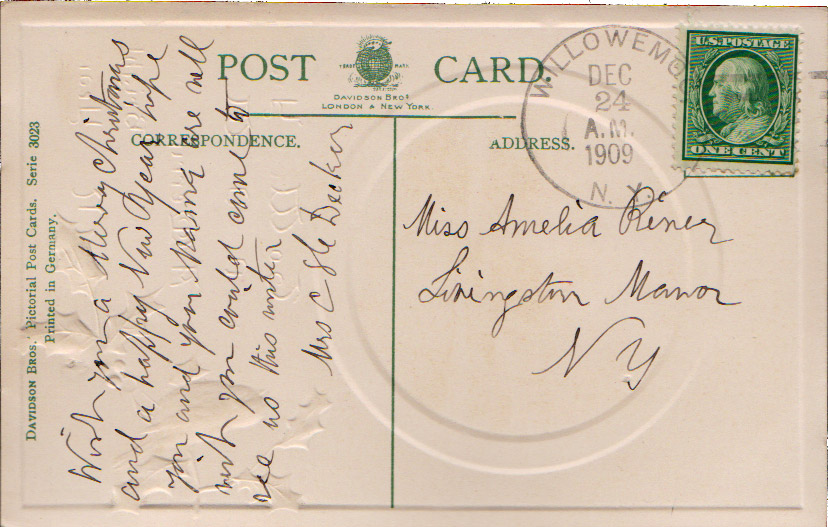 POST CARD.
TRADE MARK
DAVIDSON BROS
LONDON & NEW YORK.
CORRESPONDENCE.
ADDRESS.
WILLOWEMO
DEC
24
A.M.
1909
N.Y.
U.S. POSTAGE
ONE CENT
DAVIDSON BROS.' Pictorial Post Cards. Serie 3023
Printed in Germany.
Wish you a Merry Christmas
and a happy New Year hope
you and your are well
wish you could come to
see us this winter
Mrs C Decker
Miss Amelia
Livingston Manor
N Y